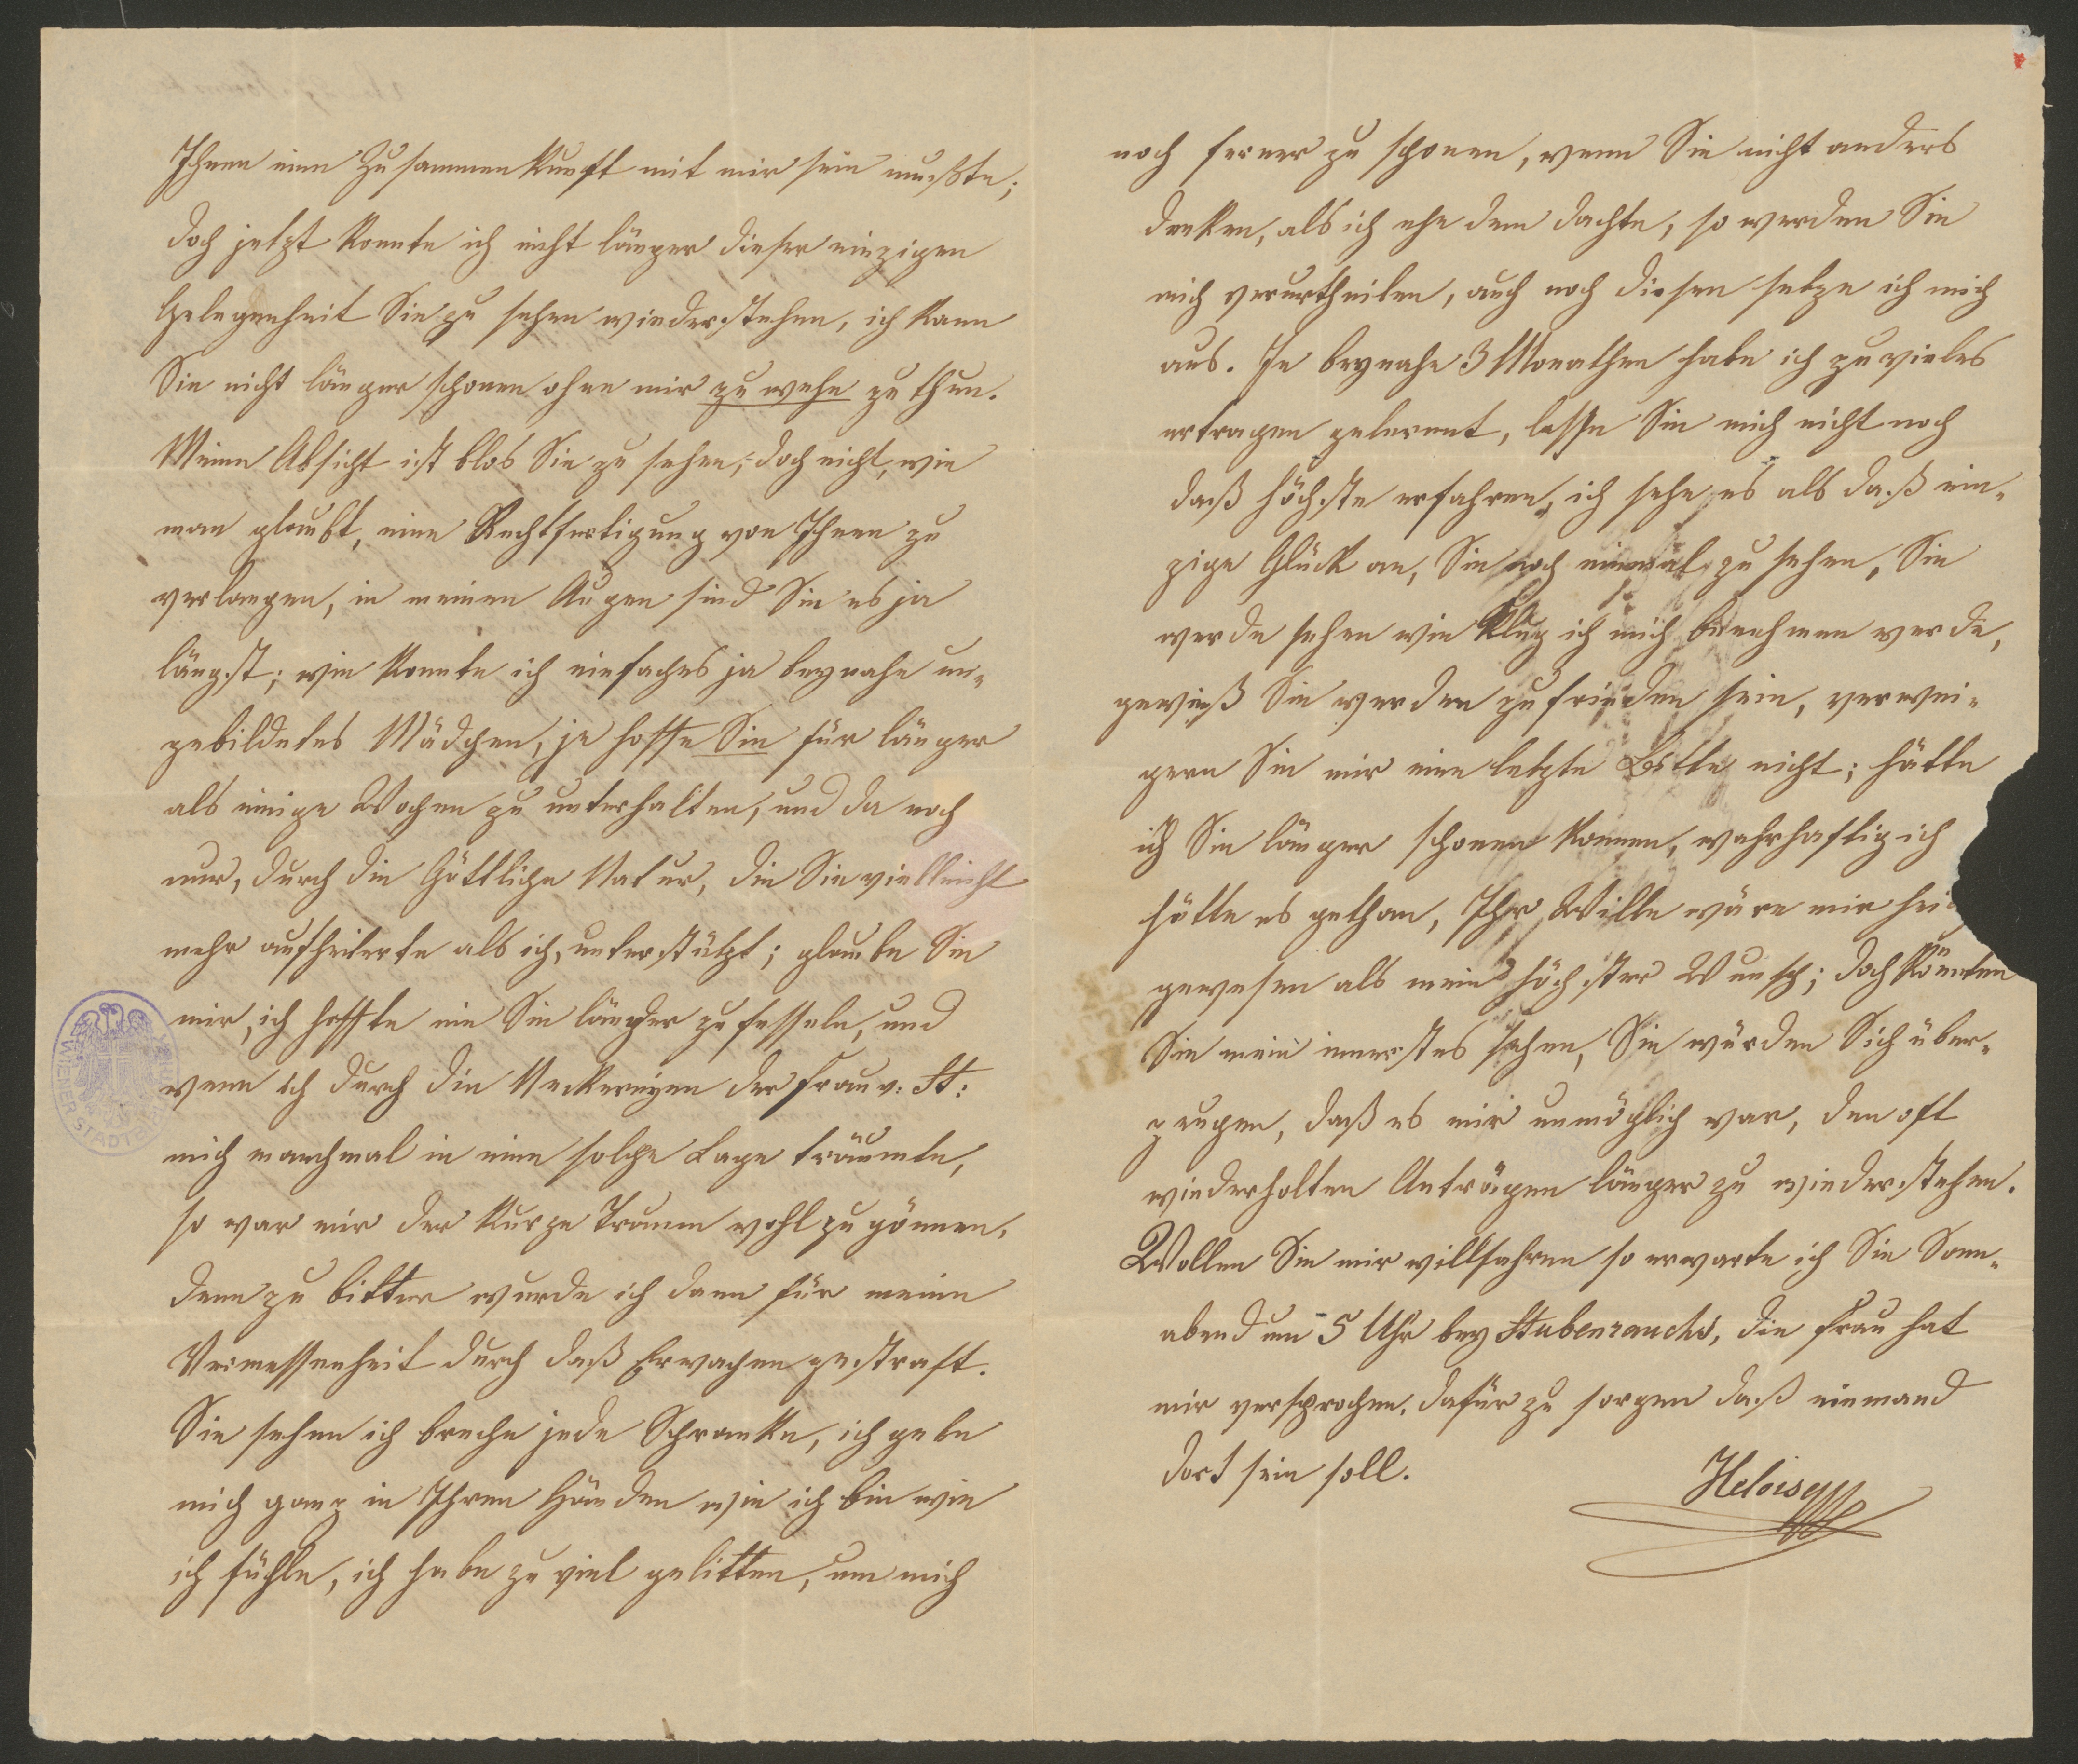 Ihnen eine Zusammenkunft mit mir sein mußte;
doch jetzt konnte ich nicht länger dieser einzigen
Gelegenheit Sie zu sehen wiederstehen, ich kann
Sie nicht länger schonen ohne mir zu wehe zu thun.
Meine Absicht ist blos Sie zu sehen, doch nicht, wie
man glaubt, eine Rechtfertigung von Ihnen zu
verlangen, in meinen Augen sind Sie es ja
längst; wie konnte ich einfaches ja beynahe un-
gebildetes Mädchen, je hoffe Sie für länger
als einige Wochen zu unterhalten, und da noch
nur, durch die Göttliche Natur, die Sie vielleicht
mehr aufheiterte als ich, unterstützt; glaube Sie
mir, ich hoffte nie Sie länger zu fesseln, und
wenn ich durch die Neckereyen der Frau v: St:
mich manchmal in eine solche Lage träumte,
so war mir der kurze Traum wohl zu gönnen,
denn zu bitter wurde ich dann für meine
Vermessenheit durch daß Erwachen gestraft.
Sie sehen ich breche jede Schranke, ich gebe
mich ganz in Ihren Händen wie ich bin wie
ich fühle, ich habe zu viel gelitten, um mich
noch ferner zu schonen, wenn Sie nicht anders
denken, als ich ehe dem dachte, so werden Sie
mich verurtheilen, auch noch diesen setze ich mich
aus. In beynahe 3 Monathen habe ich zu vieles
ertragen gelernnt, lasse Sie mich nicht noch
daß höchste erfahren, ich sehe es als daß ein-
zige Glück an, Sie noch einmal zu sehen, Sie
werde sehen wie klug ich mich benehmen werde,
gewieß Sie werden zufrieden sein, verwei-
gern Sie mir eine letzte Bitte nicht; hätte
ich Sie länger schonen können, wahrhaftig ich
hätte es gethan, Ihr Wille wäre mir hei
gewesen als mein höchster Wunsch; doch könnten
Sie mein innerstes sehen, Sie würden Sich über-
zeugen, daß es mir unmöglich war, den oft
wiederholten Anträgen länger zu wiederstehen.
Wollen Sie mir willfahren so erwarte ich Sie Sonn-
abend um 5 Uhr bey Stubenrauchs, die Frau hat
mir versprochen, dafür zu sorgen daß niemand
dort sein soll.
Heloise